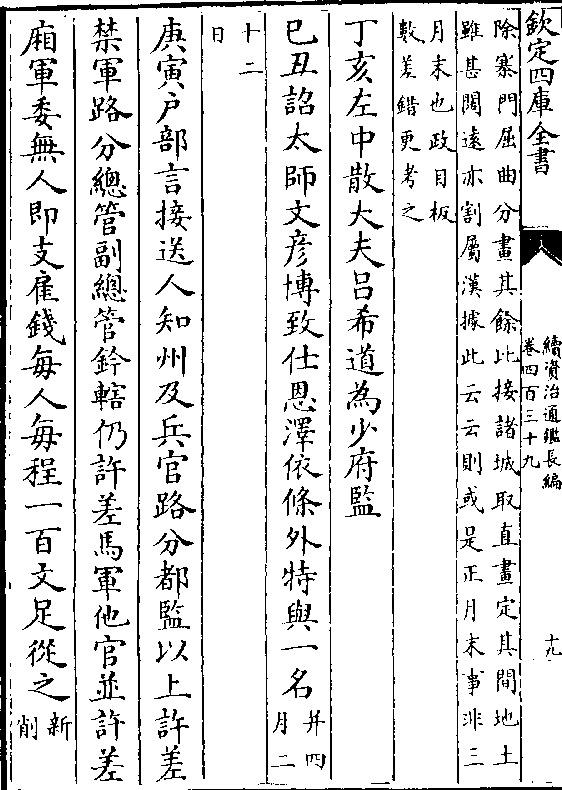 欽定四庫全書
續資治通鑑長編
卷四百三十九
十九
除寨門屈曲分畫其餘比接諸城取直畫定其間地土
雖甚闊遠亦割屬漢據此云云則或是正月末事非三
月末也政目板
數差錯更考之
丁亥左中散大夫吕希道為少府監
己丑詔太師文彦博致仕恩澤依條外特與一名并四
月二
十二
日
庚寅户部言接送人知州及兵官路分都監以上許差
禁軍路分總管副總管鈐轄仍許差馬軍他官並許差
廂軍委無人即支雇錢每人每程一百文足從之新
削